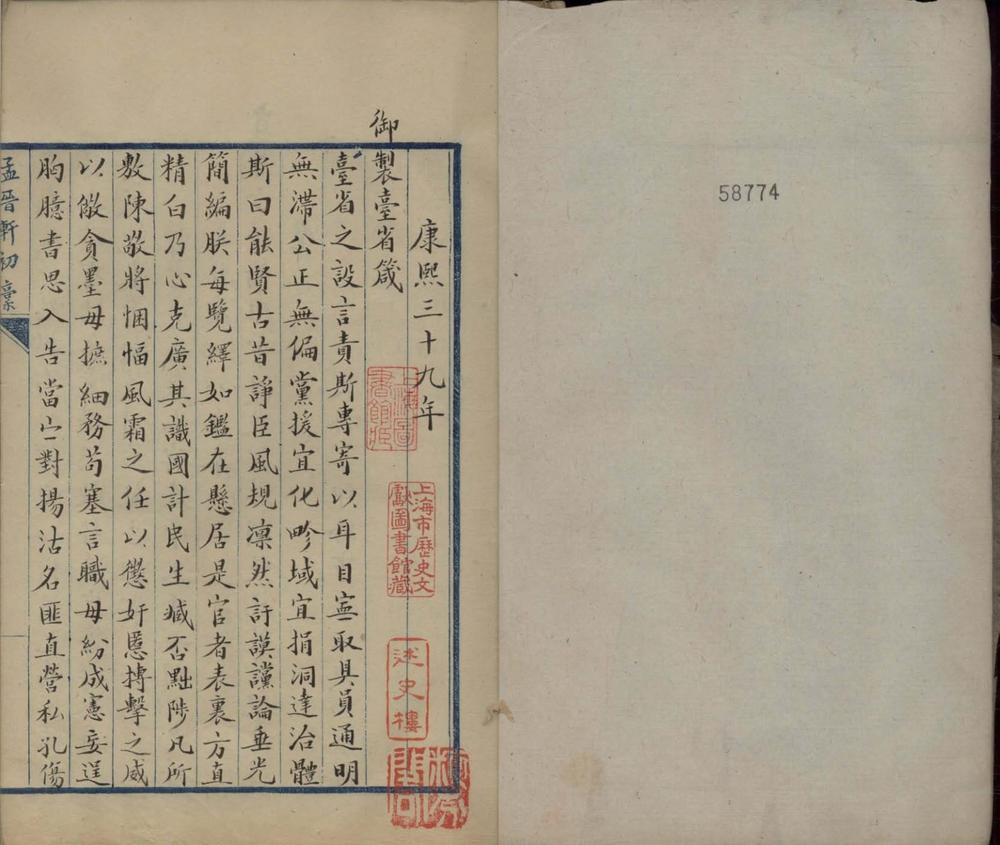 58774
康熙三十九年
御製臺省箴
臺省之設言責斯專寄以耳目寍取具員通明
無滯公正無偏黨援宜化畛域宜捐洞達治體
斯曰能賢古昔諍臣風規凛然訏謨讜論垂光
簡編朕每覽繹如鑑在懸居是官者表裏方直
精白乃心克廣其識國計民生臧否黜陟凡所
敷陳敬將悃愊風霜之任以懲奸慝搏擊之威
以儆貪墨毋摭細務苟塞言職毋紛成憲妄逞
胸臆書思入告當宁對揚沽名匪直營私孔傷
孟晉軒初稾
上海圖書館藏
上海市歷史文獻圖書館藏
述史樓